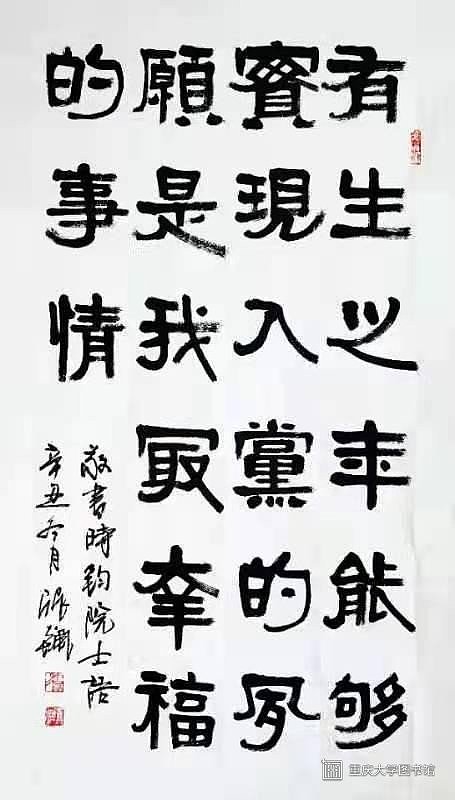 有生之年能够
實現入黨的夙
願是我冣幸福
的事情
敬書時鈞院士語
辛丑冬月
重庆大学图书馆